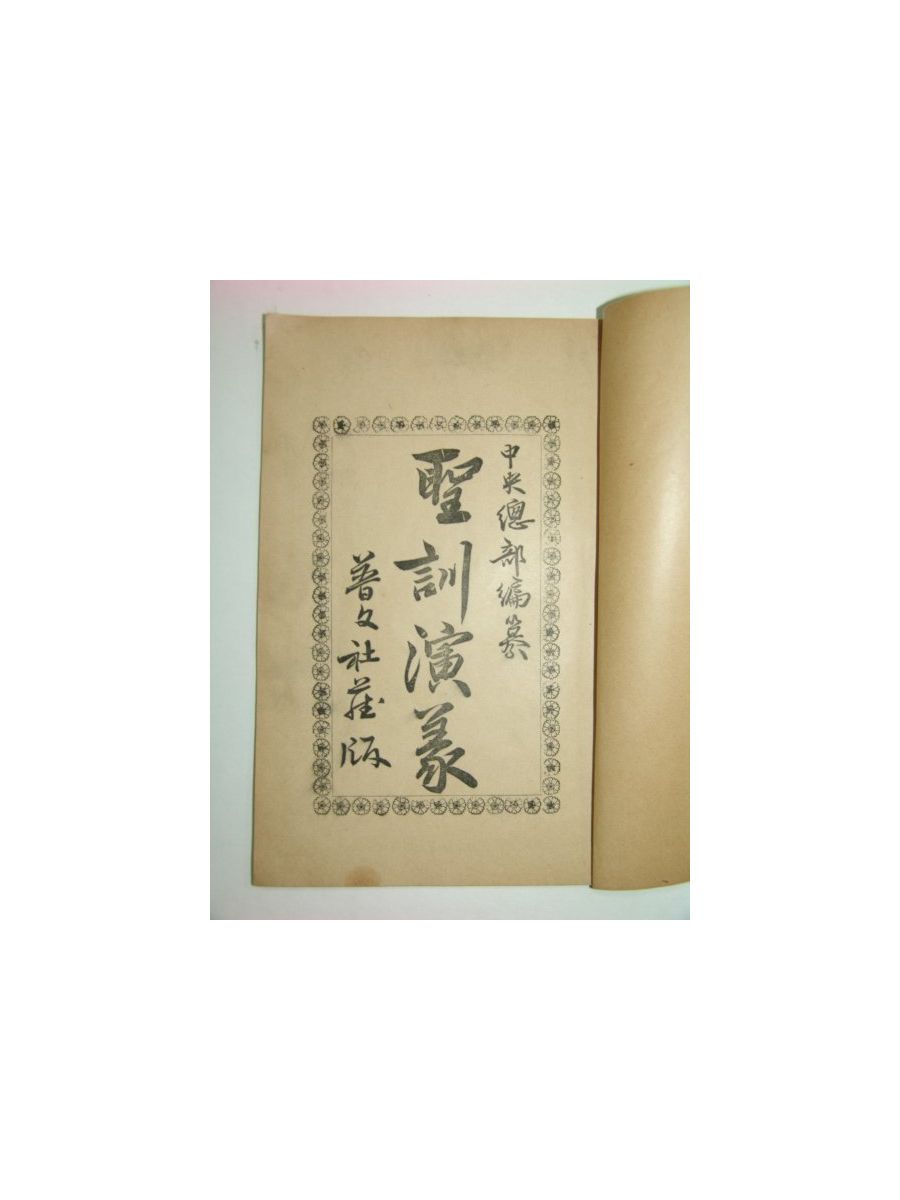 中央總部編纂
聖訓演義
普文社藏版